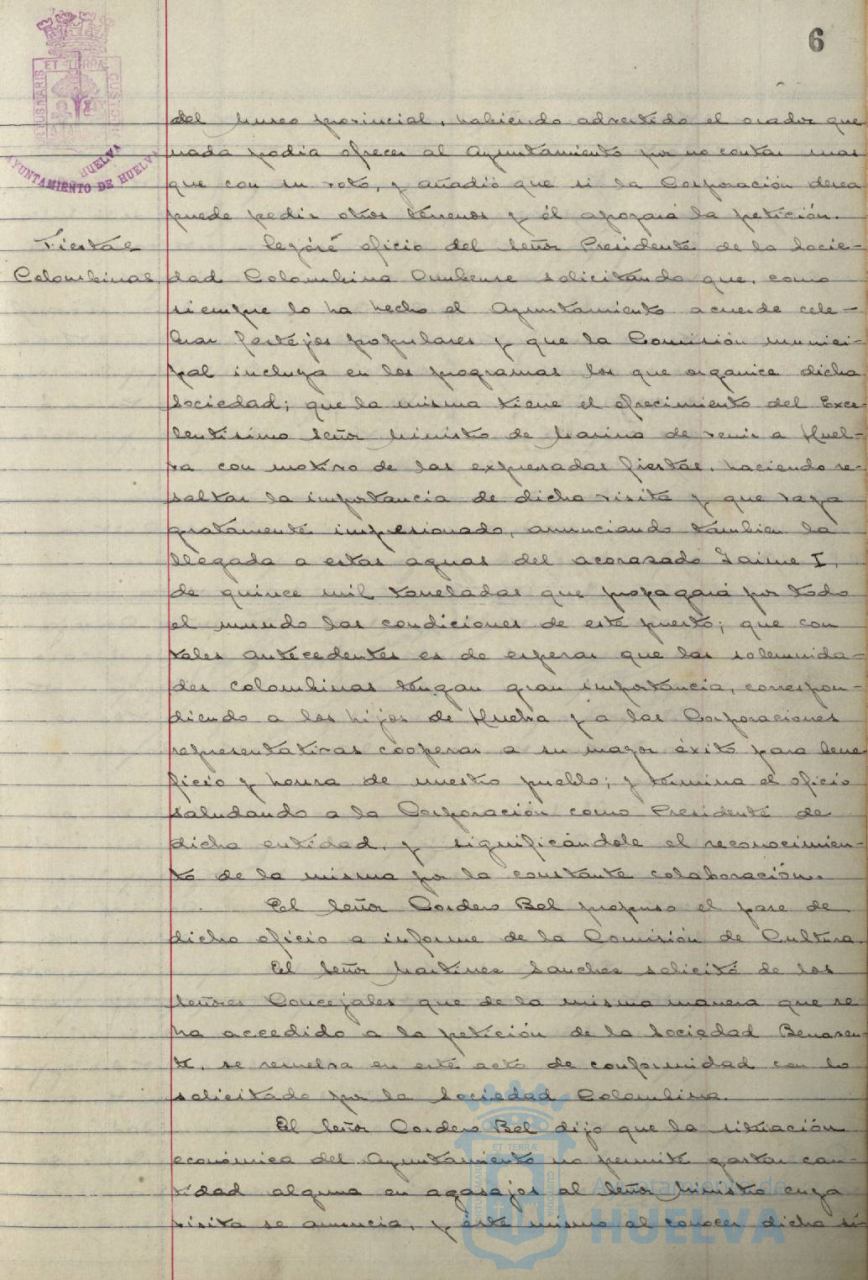 6
ET TERRÆ
AYUNTAMIENTO DE HUELVA
HUELVA
del Museo provincial, habiendo advertido el orador que
nada podía ofrecer al Ayuntamiento por no contar mas
que con su voto, y añadió que si la Corporación desea
puede pedir otros terrenos y él apoyará la petición.
Fiestas
Colombinas
Leyóse oficio del Señor Presidente de la Socie-
dad Colombina Onubense solicitando que, como
siempre lo ha hecho el Ayuntamiento acuerde cele-
brar festejos populares y que la Comisión munici-
pal incluya en los programas los que organice dicha
Sociedad; que la misma tiene el ofrecimiento del Exce-
lentísimo Señor Ministro de Marina de venir a Huel-
va con motivo de las expresadas fiestas, haciendo re-
saltar la importancia de dicha visita y que vaya
gratamente impresionado, anunciando tambien la
llegada a estas aguas del acorazado Jaime I,
de quince mil toneladas que propagará por todo
el mundo las condiciones de este puerto; que con
tales antecedentes es de esperar que las solemnida-
des colombinas tengan gran importancia, correspon-
diendo a los hijos de Huelva y a las Corporaciones
representativas cooperar a su mayor éxito para bene
ficio y honra de nuestro pueblo; y termina el oficio
saludando a la Corporación como Presidente de
dicha entidad, y significándole el reconocimien-
to de la misma por la constante colaboración.
El Señor Cordero Bel propuso el pase de
dicho oficio a informe de la Comisión de Cultura.
El Señor Martinez Sanchez solicitó de los
Señores Concejales que de la misma manera que se
ha accedido a la petición de la Sociedad Benaven-
te, se resuelva en este acto de conformidad con lo
solicitado por la Sociedad Colombina.
El Señor Cordero Bel dijo que la situación
económica del Ayuntamiento no permite gastar can-
tidad alguna en agasajos al Señor Ministro cuya
visita se anuncia, y éste mismo al conocer dicha si-
Ayuntamiento de
HUELVA